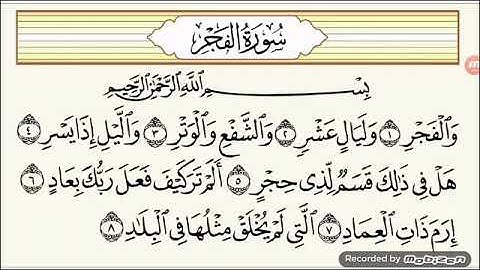 سُورَةُ الفَجْرِ
بِسْمِ اللَّهِ الرَّحْمَٰنِ الرَّحِيمِ
وَالْفَجْرِ ١ وَلَيَالٍ عَشْرٍ ٢ وَالشَّفْعِ وَالْوَتْرِ ٣ وَاللَّيْلِ إِذَا يَسْرِ ٤
هَلْ فِي ذَٰلِكَ قَسَمٌ لِّذِي حِجْرٍ ٥ أَلَمْ تَرَ كَيْفَ فَعَلَ رَبُّكَ بِعَادٍ ٦
إِرَمَ ذَاتِ الْعِمَادِ ٧ الَّتِي لَمْ يُخْلَقْ مِثْلُهَا فِي الْبِلَادِ ٨
Recorded by
mobizen